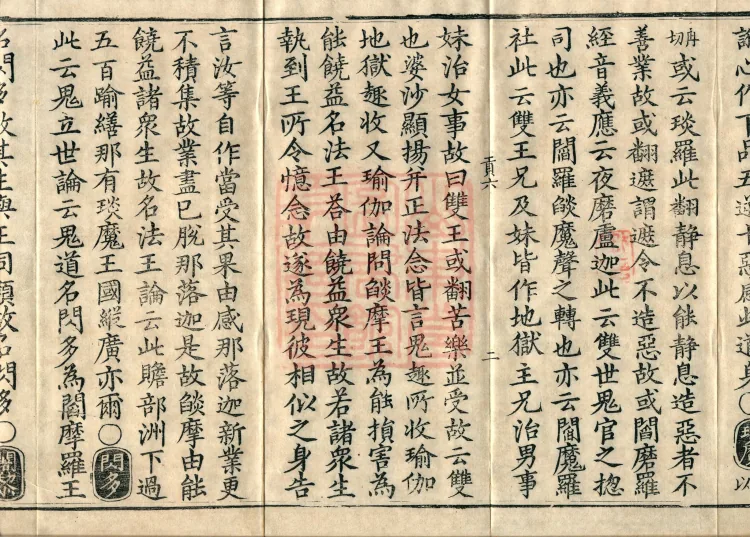 心作下品五逆十惡感此道身○琰魔以
冉切或云琰羅此翻靜息以能靜息造惡者不
善業故或翻遮謂遮令不造惡故或閻磨羅
經音義應云夜磨盧迦此云雙世鬼官之揔
司也亦云閻羅燄魔聲之轉也亦云閻魔羅
社此云雙王兄及妹皆作地獄主兄治男事
貢六 二
妹治女事故曰雙王或翻苦樂並受故云雙
也婆沙顯揚并正法念皆言鬼趣所收瑜伽
地獄趣收又瑜伽論問燄摩王為能損害為
能饒益名法王荅由饒益眾生故若諸眾生
執到王所令憶念故遂為現彼相似之身告
言汝等自作當受其果由感那落迦新業更
不積集故業盡已脫那落迦是故燄摩由能
饒益諸眾生故名法王論云此贍部洲下過
五百踰繕那有琰魔王國縱廣亦爾○閃多
此云鬼立世論云鬼道名閃多為閻摩羅王
名閃多故其生與王同類故名閃多○